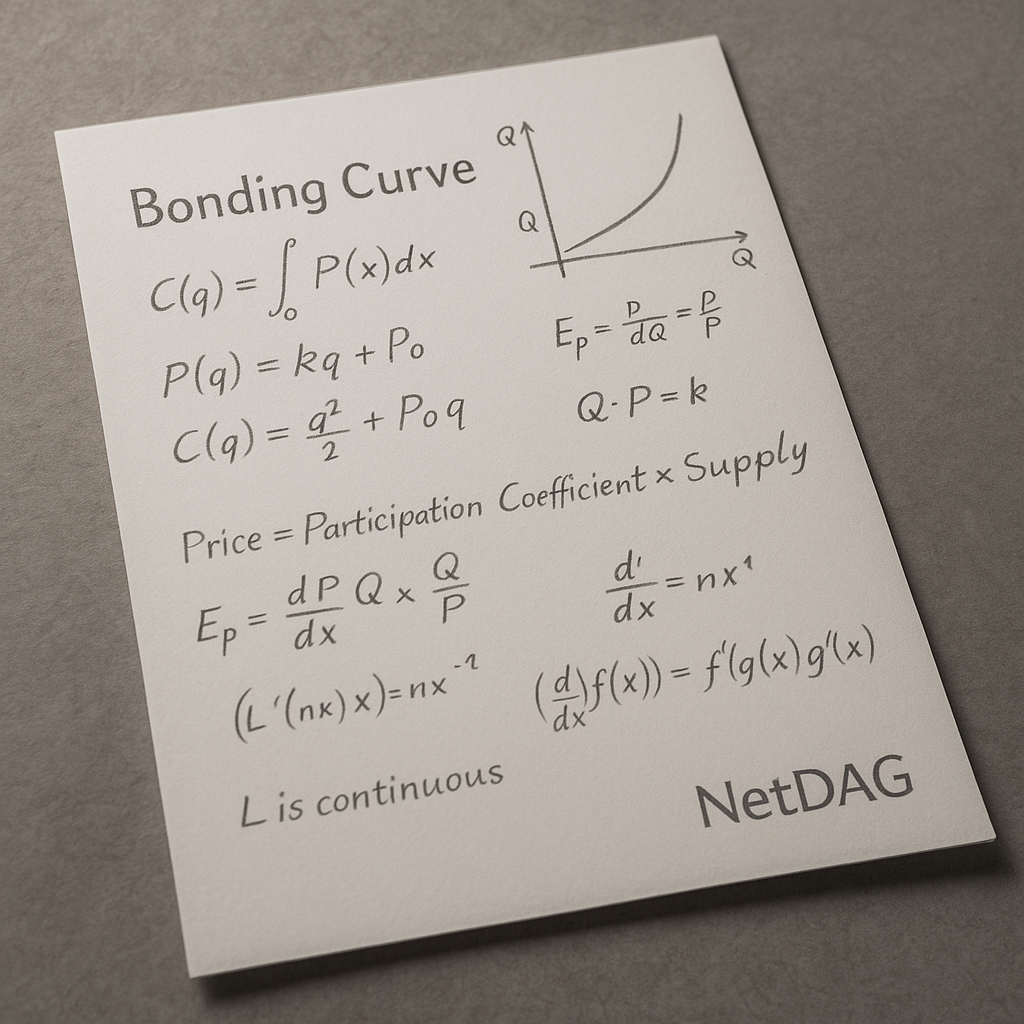 Bonding Curve
Q
Q
Q
C(q) = ∫₀ P(x)dx
P(q) = kq + P₀
C(q) = q²/2 + P₀q
Eₚ = p/dQ = p/P
Q · P = k
Price = Participation Coefficient × Supply
Eₚ = dP/dx Q × Q/P
d'/dx = nx¹
(L'(nx)x) = nx⁻¹
(d/dx)f(x)) = f'(g(x)g'(x)
L is continuous
NetDAG